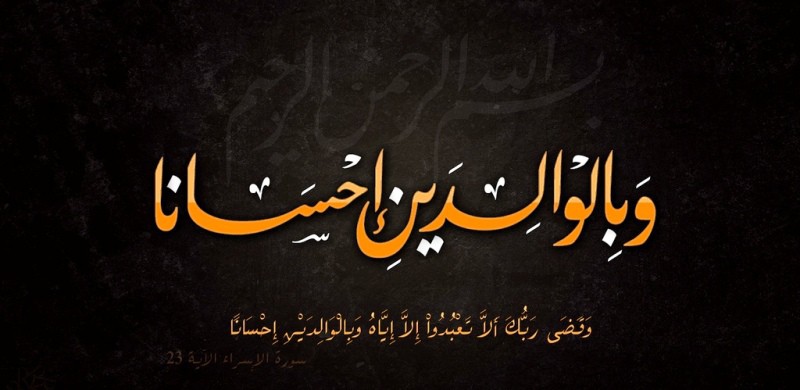 بسم الله الرحمن الرحيم
وَبِالْوَالِدَينِ إِحْسَانا
وَقَضَى رَبُّكَ أَلاَّ تَعْبُدُواْ إِلاَّ إِيَّاهُ وَبِالْوَالِدَيْنِ إِحْسَانًا
سورة الإسراء الآية 23